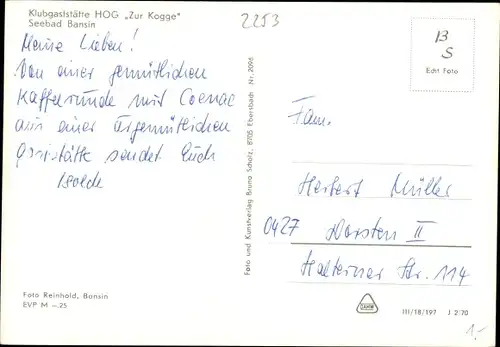 Klubgaststätte HOG „Zur Kogge"
Seebad Bansin
2253
Meine Lieben!
Von einer gemütlichen
Kaffeerunde mit Cognac
aus einer urgemütlichen
Gaststätte sendet Euch
Isolde
Foto Reinhold, Bansin
EVP M –,25
Foto und Kunstverlag Bruno Scholz, 8705 Ebersbach Nr. 2096
B
S
Echt Foto
Fam.
Herbert Müller
0427 Dorsten II
Halterner Str. 114
III/18/197 J 2/70
1,-